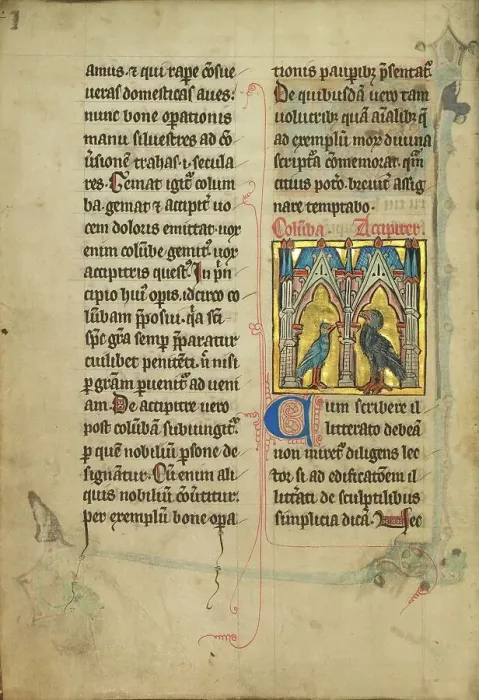 amus. ⁊ qui rape ɔ̄sue
ueras domesticas aues:
nunc bone opationis
manu siluestres ad cō
ūsionē trahas. i. secula
res. Gemat igit̄ colum
ba. gemat ⁊ accipit̄ uo
cem doloris emittat. uox
enim colūbe gemit᷒. uox
accipitris quest᷒. In p̄n
cipio hui᷒ opis. idcirco co
lūbam p̄posui. q̄a sc̄i
sp̄c gr̄a semp p̄paratur
cuilibet penitēti. n̄ nisi
p gr̄am puenit᷒ ad ueni
am. De accipitre uero
post colūbā subiungit᷒.
p quē nobiliū p̄sone de
signātur. Cū enim ali
quis nobiliū ɔ̄ūtitur.
per exemplū bone opa
tionis paupibꝫ p̄sentat᷒.
De quibusdā uero tam
uolucribꝫ quā aīalibꝫ q̄
ad exemplū moꝝ diuina
scriptͣa ɔ̄memorat. qm̄
citius potͦo. breuit̄ assig
nare temptabo.
Colūba Accipiter.
Cum scribere il
litterato debeā
non miret᷒ diligens lec
tor si ad edificatōem il
litt̄ati de sculptilibus
simplicia dicā. Nec